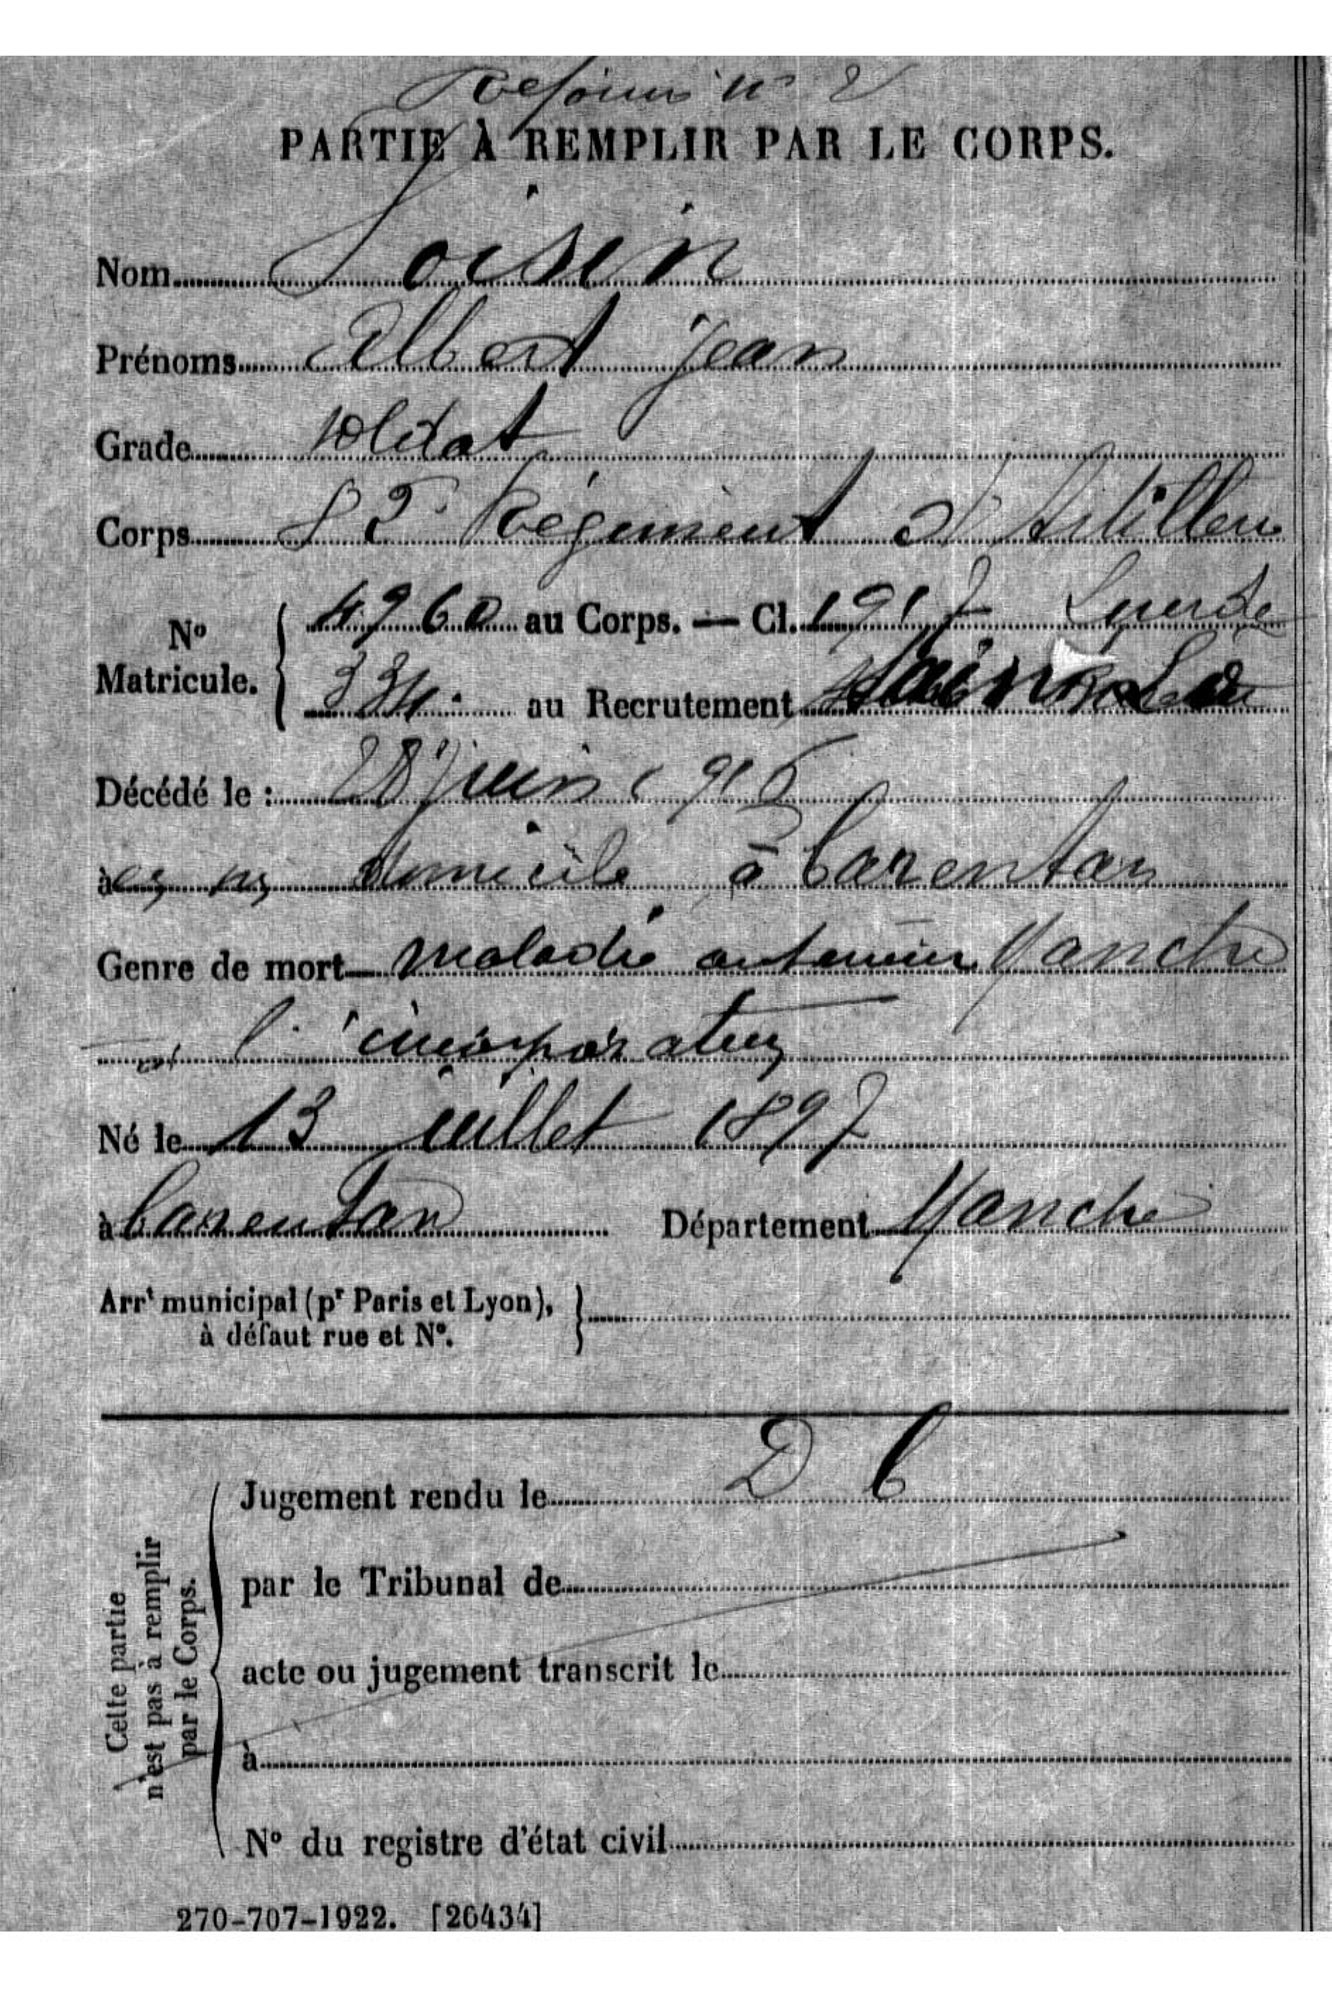 n° 2
PARTIE À REMPLIR PAR LE CORPS.
Nom Loisin
Prénoms Albert Jean
Grade soldat
Corps 82e Régiment d'Artillerie
Lourde
N° Matricule. { 4960 au Corps. — Cl. 1917
334 au Recrutement Saint Lo
Décédé le : 28 juin 1916
à domicile à Carentan
Manche
Genre de mort maladie antérieure
à l'incorporation
Né le 13 juillet 1897
à Carentan Département Manche
Arrt municipal (pr Paris et Lyon), }
à défaut rue et N°.
D C
Cette partie
n'est pas à remplir
par le Corps.
Jugement rendu le
par le Tribunal de
acte ou jugement transcrit le
à
N° du registre d'état civil
270-707-1922. [26434]